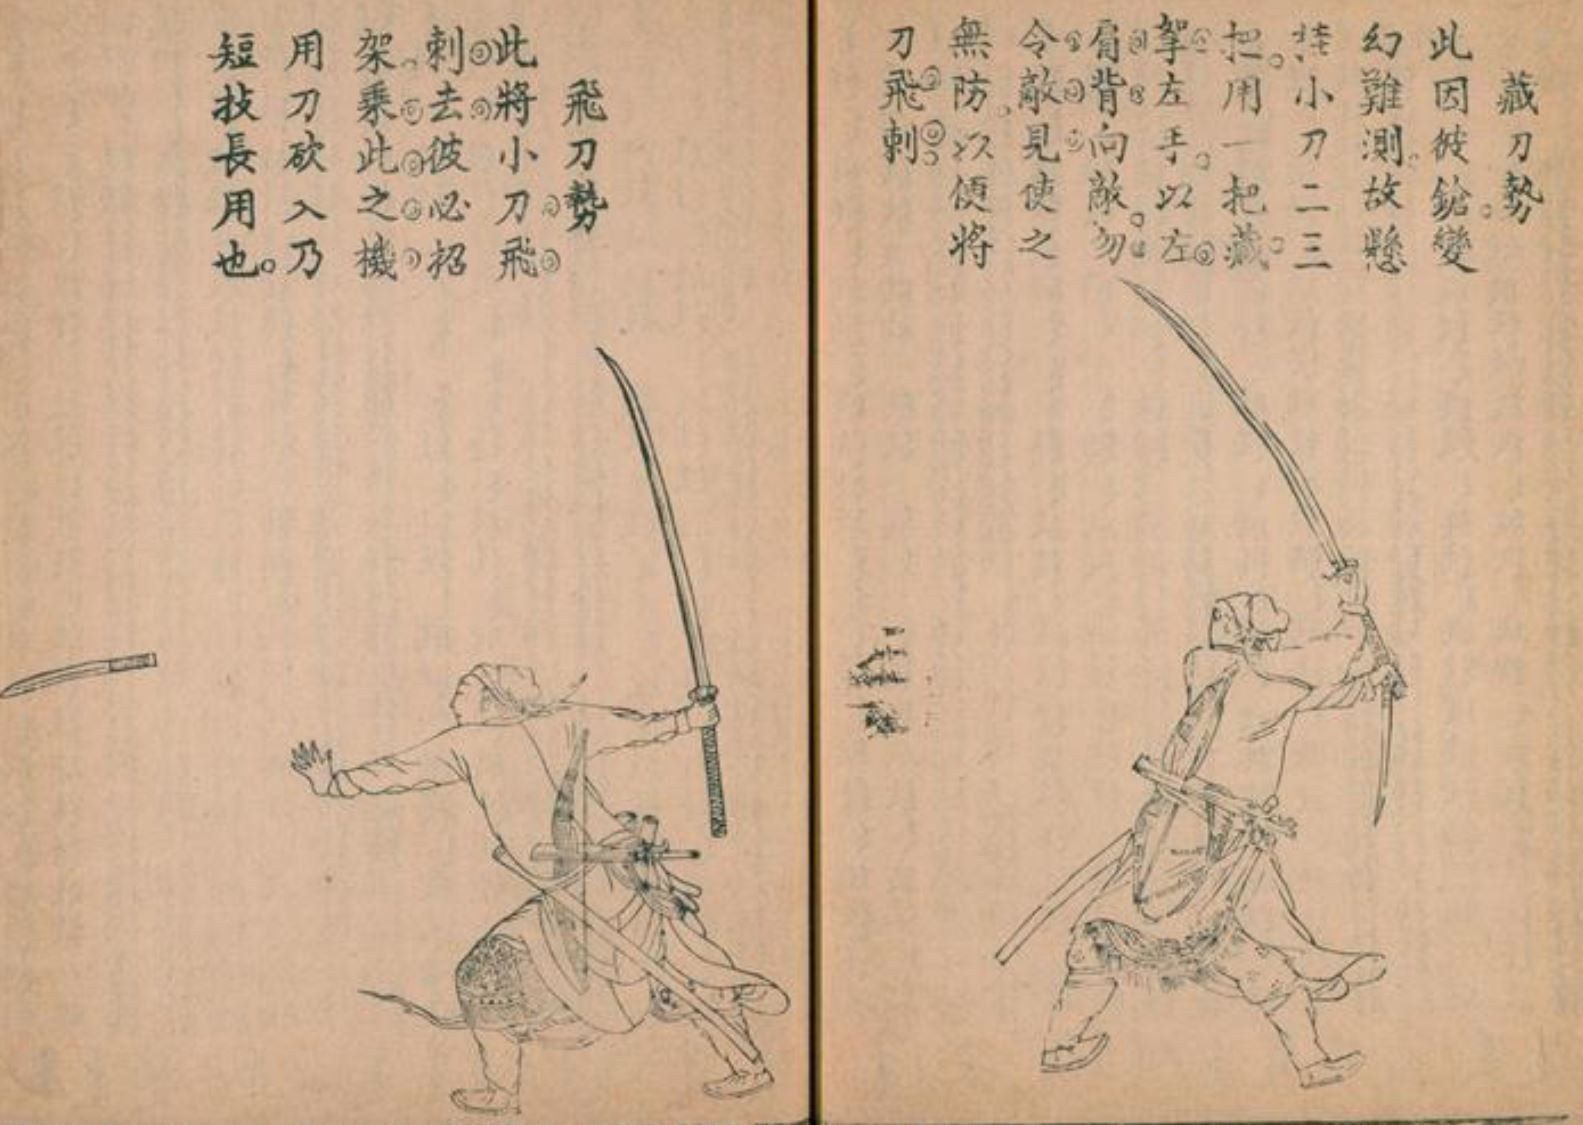 藏刀勢。
此因彼鎗變
幻難測。故懸
挂小刀二三
把。用一把藏。
挐左手。以左
肩背向敵。勿
令敵見使之
無防。以便將
刀飛刺。
飛刀勢
此將小刀飛
刺去彼必招
架。乘此之機
用刀砍入乃
短技長用也。